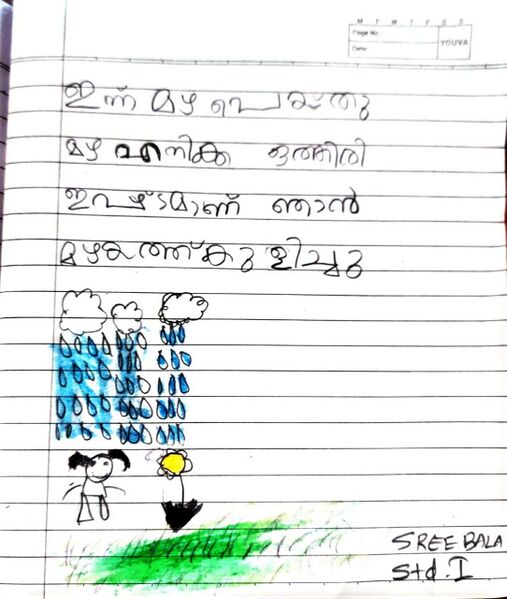 M T W T F S S
Page No.:
Date:
YOUVA
ഇന്ന് മഴ പെയ്തു
മഴ എനിക്ക ഒത്തിരി
ഇഷ്ടമാണ് ഞാൻ
മഴയത്ത് കുളിച്ചു
SREEBALA
Std. I